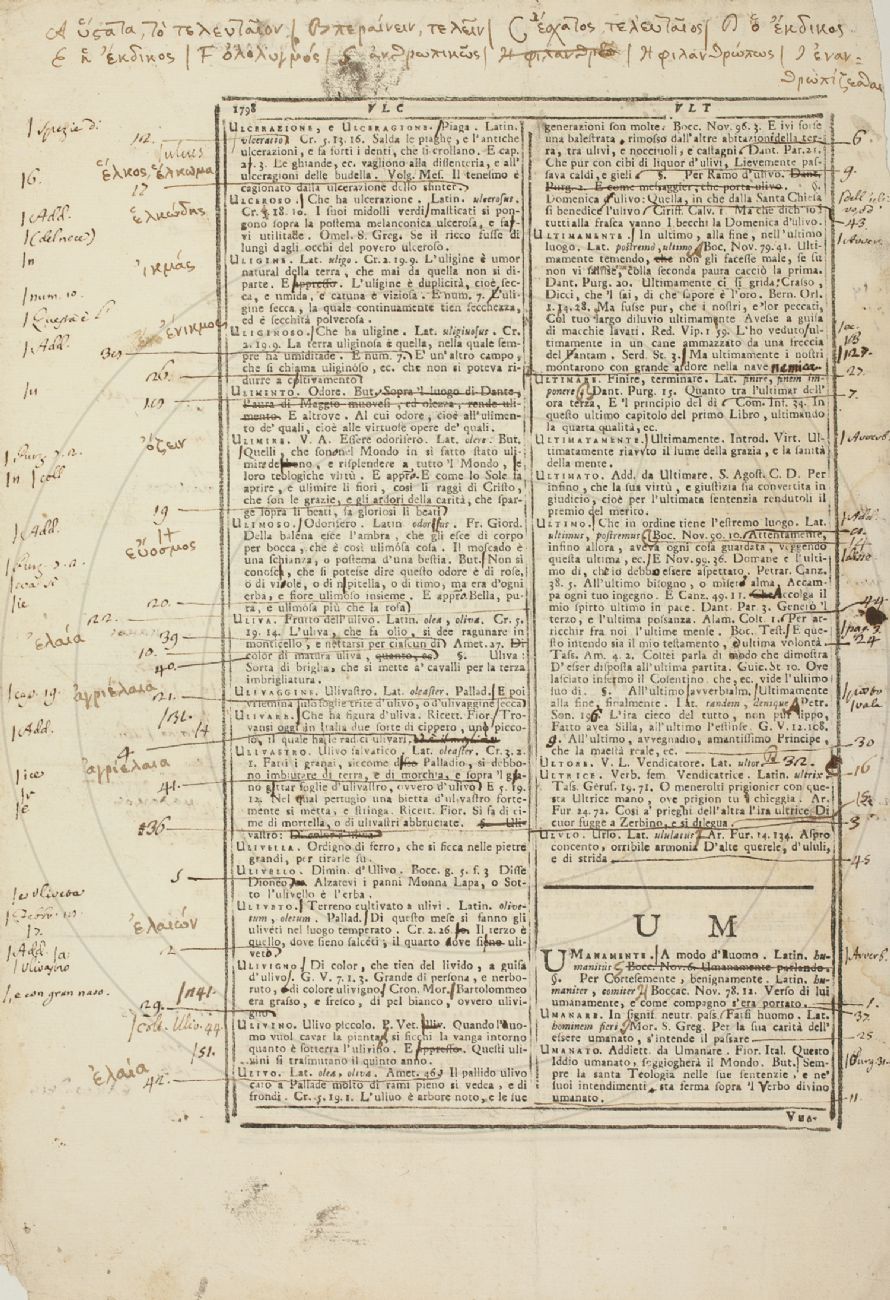 A ὕστατα, τὸ τελευταῖον | B περαίνειν, τελεῖν | C ἔσχατος, τελευταῖος | D ὁ ἔκδικος
E ἡ ἔκδικος | F ὀλολυγμός | G ἀνθρωπικῶς | H φιλανθρώπως | I ἐναν=
θρωπίζεσθαι
1798 VLC VLT
ULCERAZIONE, e ULCERAGIONE. Piaga. Latin.
ulceratio Cr. 5. 13. 16. Salda le piaghe, e l'antiche
ulcerazioni, e fa forti i denti, che si crollano. E cap.
23. 3. Le ghiande, ec. vagliono alla dissenteria, e all'
ulceragioni delle budella. Volg. Mes. Il tenesmo è
cagionato dalla ulcerazione dello
ULCEROSO. Che ha ulcerazione. Latin. ulcerosus.
Cr. 18. 10. I suoi midolli verdi masticati si pon-
gono sopra la postema melanconica ulcerosa, e fav-
vi utilitade. Omel. S. Greg. Se il ricco fusse di
lungi dagli occhi del povero ulceroso.
ULIGINE. Lat. uligo. Cr. 2. 19. 9. L'uligine è umor
natural della terra, che mai da quella non si di-
parte. E appresso. L'uligine è duplicità, cioè sec-
ca, e umida, e catuna è viziosa. E num. 7. L'uli-
gine secca, la quale continuamente tien secchezza,
ed è secchità polverosa.
ULIGINOSO. Che ha uligine. Lat. uliginosus. Cr.
2. 19. 9. La terra uliginosa è quella, nella quale sem-
pre ha umiditade. E num. 7. E' un'altro campo,
che si chiama uliginoso, ec. che non si poteva ri-
durre a coltivamento
ULIMENTO. Odore. But. Sopra 'l luogo di Dante,
Laura di Maggio muovesi, ed olezza, rende uli-
mento. E altrove. Al cui odore, cioè all'ulimen-
to de' quali, cioè alle virtuose opere de' quali.
ULIMIRE. V. A. Essere odorifero. Lat. olere. But.
Quelli, che sono nel Mondo in sì fatto stato uli-
e risplendere a tutto 'l Mondo, le
loro teologiche virtù. E E come lo Sole fa
aprire, e ulimire li fiori, così li raggi di Cristo,
che son le grazie, e gli ardori della carità, che spar-
ge sopra li beati, fa gloriosi li beati
ULIMOSO. Odorifero. Latin. odorosus. Fr. Giord.
Della balena esce l'ambra, che gli esce di corpo
per bocca, che è così ulimosa cosa. Il moscado è
una schianza, o postema d'una bestia. But. Non si
conosca, che si potesse dire questo odore è di rose,
o di viole, o di nipitella, o di timo, ma era d'ogni
erba, e fiore ulimoso insieme. E Bella, pu-
ra, e ulimosa più che la rosa
ULIVA. Frutto dell'ulivo. Latin. olea, oliva. Cr. 5.
19. 14. L'uliva, che fa olio, si dee ragunare in
monticello, e nettarsi per ciascun dì Amet. 27. Di
color di matura uliva, quanto, ec. §. Uliva:
Sorta di briglia, che si mette a' cavalli per la terza
imbrigliatura.
ULIVAGGINE. Ulivastro. Lat. oleaster. Pallad. E poi
d'ulivo, o d'ulivaggine secca
ULIVARE. Che ha figura d'uliva. Ricett. Fior. Tro-
vansi oggi in Italia due sorte di cippero, uno picco-
lo, il quale ha le radici ulivari.
ULIVASTRO. Ulivo salvatico. Lat. oleaster. Cr. 3. 2.
1. Fatti i granai, siccome dice Palladio, si debbo-
no imbiutare di terra, e di morchia, e sopra 'l gra-
no gittar foglie d'ulivastro, ovvero d'ulivo E 5. 19.
12. Nel qual pertugio una bietta d'ulivastro forte-
mente si metta, e stringa. Ricett. Fior. Si fa di ci-
me di mortella, o di ulivastri abbruciate. §. Uli-
vastro: Di color d'uliva
ULIVELLA. Ordigno di ferro, che si ficca nelle pietre
grandi, per tirarle su.
ULIVELLO. Dimin. d'Ulivo. Bocc. g. 5. f. 3 Disse
Dioneo Alzatevi i panni Monna Lapa, o Sot-
to l'ulivello è l'erba.
ULIVETO. Terreno cultivato a ulivi. Latin. olive-
tum, oletum. Pallad. Di questo mese si fanno gli
uliveti nel luogo temperato. Cr. 2. 26. Il terzo è
quello, dove sieno salceti; il quarto dove sieno uli-
veto
ULIVIGNO Di color, che tien del livido, a guisa
d'ulivo. G. V. 7. 1. 3. Grande di persona, e nerbo-
ruto, e di colore ulivigno Cron. Mor. Bartolommeo
era grasso, e fresco, di pel bianco, ovvero ulivi-
gno
ULIVINO. Ulivo piccolo. P. Vet. Uliv. Quando l'huo-
mo vuol cavar la pianta, si ficchi la vanga intorno
quanto è sotterra l'ulivino. E appresso. Questi uli-
vini si trasmutano il quinto anno.
ULIVO. Lat. olea, oliva. Amet. 46. Il pallido ulivo
cato a Pallade molto di rami pieno si vedea, e di
frondi. Cr. 5. 19. 1. L'ulivo è arbore noto, e le sue
generazioni son molte. Bocc. Nov. 96. 3. E ivi forse
una balestrata, rimosso dall'altre abitazioni della ter-
ra, tra ulivi, e nocciuoli, e castagni Dant. Par. 21.
Che pur con cibi di liquor d'ulivi, Lievemente pas-
sava caldi, e gieli §. Per Ramo d'ulivo. Dant.
Purg. 2. E come messaggier, che porta ulivo. §.
Domenica d'ulivo: Quella, in che dalla Santa Chiesa
si benedice l'ulivo Ciriff. Calv. 1. Ma che dich'io?
tutti alla frasca vanno I becchi la Domenica d'ulivo.
ULTIMAMENTE. In ultimo, alla fine, nell'ultimo
luogo. Lat. postremò, ultimo Boc. Nov. 79. 41. Ulti-
mamente temendo, che non gli facesse male, se su
non vi salisse, colla seconda paura cacciò la prima.
Dant. Purg. 20. Ultimamente ci si grida: Crasso,
Dicci, che 'l sai, di che sapore è l'oro. Bern. Orl.
1. 14. 28. Ma fusse pur, che i nostri, e lor peccati,
Col tuo largo diluvio ultimamente Avesse a guisa
di macchie lavati. Red. Vip. 1. 59. L'ho veduto ul-
timamente in un cane ammazzato da una freccia
del Pantam. Serd. St. 3. Ma ultimamente i nostri
montarono con grande ardore nella nave nemica.
ULTIMARE. Finire, terminare. Lat. finire, finem im-
ponere Dant. Purg. 15. Quanto tra l'ultimar dell'
ora terza, E 'l principio del dì Com. Inf. 34. In
questo ultimo capitolo del primo Libro, ultimando
la quarta qualità, ec.
ULTIMATAMENTE. Ultimamente. Introd. Virt. Ul-
timatamente riavvto il lume della grazia, e la sanità
della mente.
ULTIMATO. Add. da Ultimare. S. Agost. C. D. Per
infino, che la sua virtù, e giustizia sia convertita in
giudicio, cioè per l'ultimata sentenzia rendutoli il
premio del merito.
ULTIMO. Che in ordine tiene l'estremo luogo. Lat.
ultimus, postremus Boc. Nov. 50. 10. Attentamente,
infino allora, aveva ogni cosa guardata, veggendo
questa ultima, ec. E Nov. 99. 36. Domane è l'ulti-
mo dì, ch'io debbo essere aspettato. Petrar. Canz.
38. 5. All'ultimo bisogno, o misera alma, Accam-
pa ogni tuo ingegno. E Canz. 49. 11. Che accolga il
mio spirto ultimo in pace. Dant. Par. 3. Generò 'l
terzo, e l'ultima possanza. Alam. Colt. 1. Per ar-
ricchir fra noi l'ultime mense. Boc. Test. E que-
sto intendo sia il mio testamento, e ultima volontà.
Tass. Am. 4. 2. Coltei parla di modo che dimostra
D'esser disposta all'ultima partita. Guic. St. 10. Ove
lasciato infermo il Cosentino che, ec. vide l'ultimo
suo dì. §. All'ultimo avverbialm. Ultimamente
alla fine, finalmente. Lat. tandem, denique Petr.
Son. 196 L'ira cieco del tutto, non pur lippo,
Fatto avea Silla, all'ultimo l'estinse. G. V. 12. 108.
9. All'ultimo, avvegnadio, amantissimo Principe,
che la maestà reale, ec.
ULTORE. V. L. Vendicatore. Lat. ultor 312.
ULTRICE. Verb. fem. Vendicatrice. Latin. ultrix
Tass. Gerus. 19. 71. O menerolti prigionier con que-
sta Ultrice mano, ove prigion tu 'l chieggia. Ar.
Fur. 24. 72. Così a' prieghi dell'altra l'ira ultrice Di
cuor fugge a Zerbino, e si dilegua
ULULO. Urlo. Lat. ululatus Ar. Fur. 14. 134. Aspro
concento, orribile armonia D'alte querele, d'ululi,
e di strida
U M
UMANAMENTE. A modo d'uomo. Latin. hu-
manitùs Bocc. Nov. 6. Umanamente parlando.
§. Per Cortesemente, benignamente. Latin. hu-
maniter, comiter Boccac. Nov. 78. 12. Verso di lui
umanamente, e come compagno s'era portato.
UMANARE. In signif. neutr. pass. Farsi huomo. Lat.
hominem fieri Mor. S. Greg. Per la sua carità dell'
essere umanato, s'intende il passare
UMANATO. Addiett. da Umanare. Fior. Ital. Questo
Iddio umanato, seggiogherà il Mondo. But. Sem-
pre la santa Teologia nelle sue sentenzie, e ne'
suoi intendimenti sta ferma sopra 'l Verbo divino
umanato.
spezie di
102.
ulcus
ἕλκος, ἕλκωμα
16.
17
Add.
ἑλκώδης
(del noce)
In
ἰκμάς
num. 10.
Add.
ἔνικμος
30
26.
In
19
ὄζειν
Purg. 7. 2.
In coll
19
14
Add.
εὔοσμος
20.
22.
ἐλαία
39
10.
40.
ἀγριέλαια
21.
131.
14
Add.
4.
ἀγριέλαια
41.
36
5
ἐλαιών
17.
Add.
2
Ulivigno
e con gran naso.
1141.
29.
coll. Uliv. 44.
151.
ἐλαία
42.
6
9.
43
Avverb.
27.
7.
Avverb.
Add.
44
par. 3.
24
30
16
3
45
Avverb.
1.
37.
25
Purg. 31.
11.